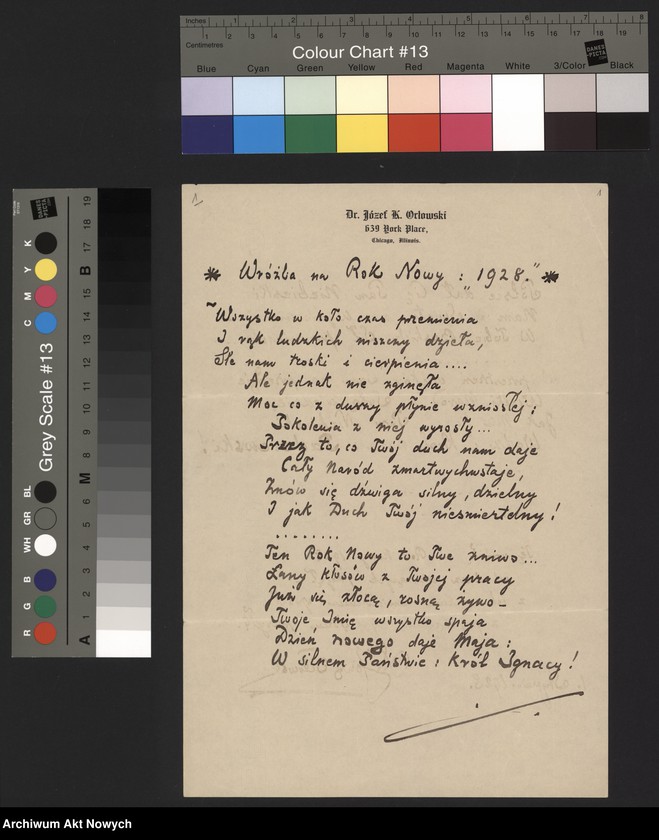 Inches 1 2 3 4 5 6 7 8
1 2 3 4 5 6 7 8 9 10 11 12 13 14 15 16 17 18 19
Centimetres
Colour Chart #13
DANES PICTA
Blue Cyan Green Yellow Red Magenta White 3/Color Black
Grey Scale #13
R G B WH GR BL C M Y K
A 1 2 3 4 5 6 M 8 9 10 11 12 13 14 15 B 17 18 19
1 1
Dr. Józef K. Orłowski
639 York Place,
Chicago, Illinois.
* Wróżba na Rok Nowy: "1928." *
Wszystko w koło czas przemienia
I rąk ludzkich niszczy dzieła,
Śle nam troski i cierpienia....
Ale jednak nie zginęła
Moc co z dumy płynie wzniosłej:
Pokolenia z niej wyrosły...
Przez to, co Twój duch nam daje
Cały Naród zmartwychwstaje,
Znów się dźwiga silny, dzielny
I jak Duch Twój nieśmiertelny!
.........
Ten Rok Nowy to Twe żniwo...
Łany kłosów z Twojej pracy
Już się złocą, rosną żywo –
Twoje Imię wszystko spaja
Dzień nowego daje Maja:
W silnem Państwie: Król Ignacy!
Archiwum Akt Nowych